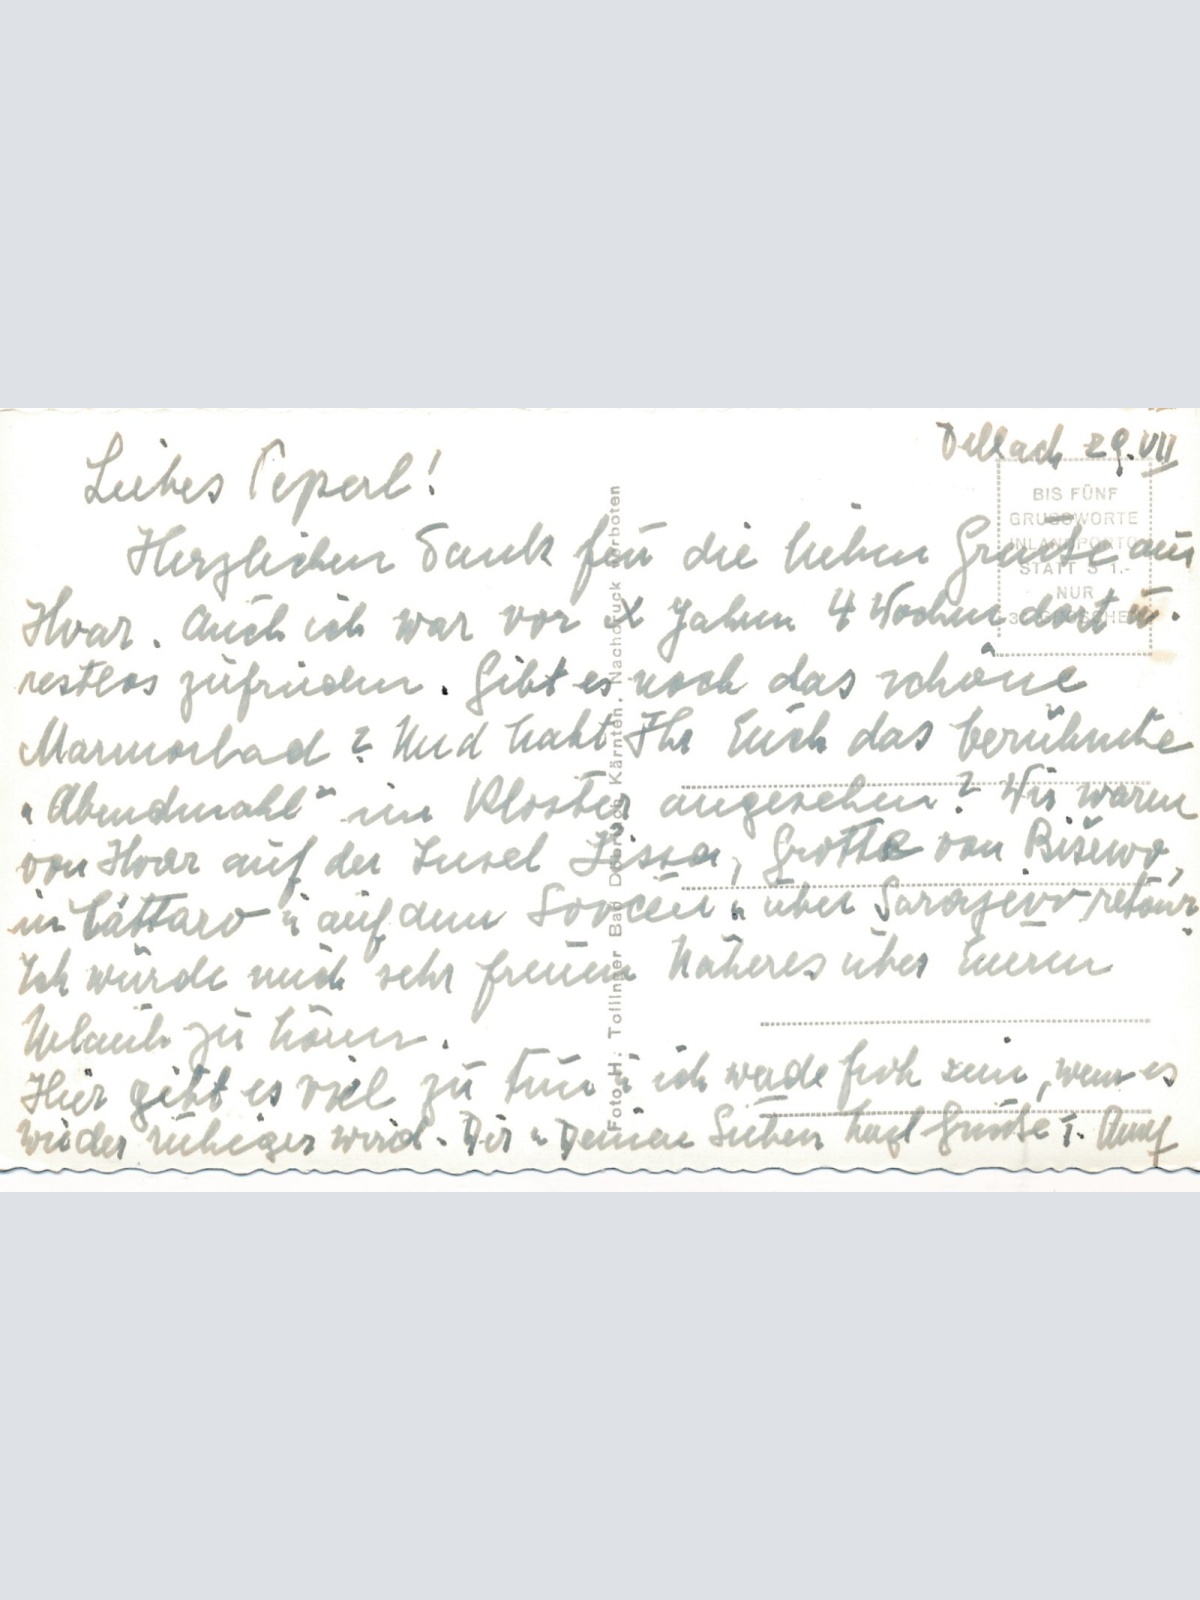 Dellach 29.VII
Liebes Peperl!
BIS FÜNF
GRUSSWORTE
INLANDPORTO
STATT S 1.-
NUR
Herzlichen Dank für die lieben Grüsse aus
Hvar. Auch ich war vor X Jahren 4 Wochen dort u.
restlos zufrieden. Gibt es noch das schöne
Marmorbad? Und habt Ihr Euch das berühmte
"Abendmahl" im Kloster angesehen? Wir waren
von Hvar auf der Insel Lissa, Grotte von Biševo,
in Cattaro u. auf dem Lovcen u. über Sarajevo retour.
Ich würde mich sehr freuen Näheres über Eueren
Urlaub zu hören.
Hier gibt es viel zu tun u. ich werde froh sein, wenn es
wieder ruhiger wird. Dir u. Deinen Lieben herzl Grüsse T.
Foto H. Tollinger Bad Kärnten. Nachdruck verboten